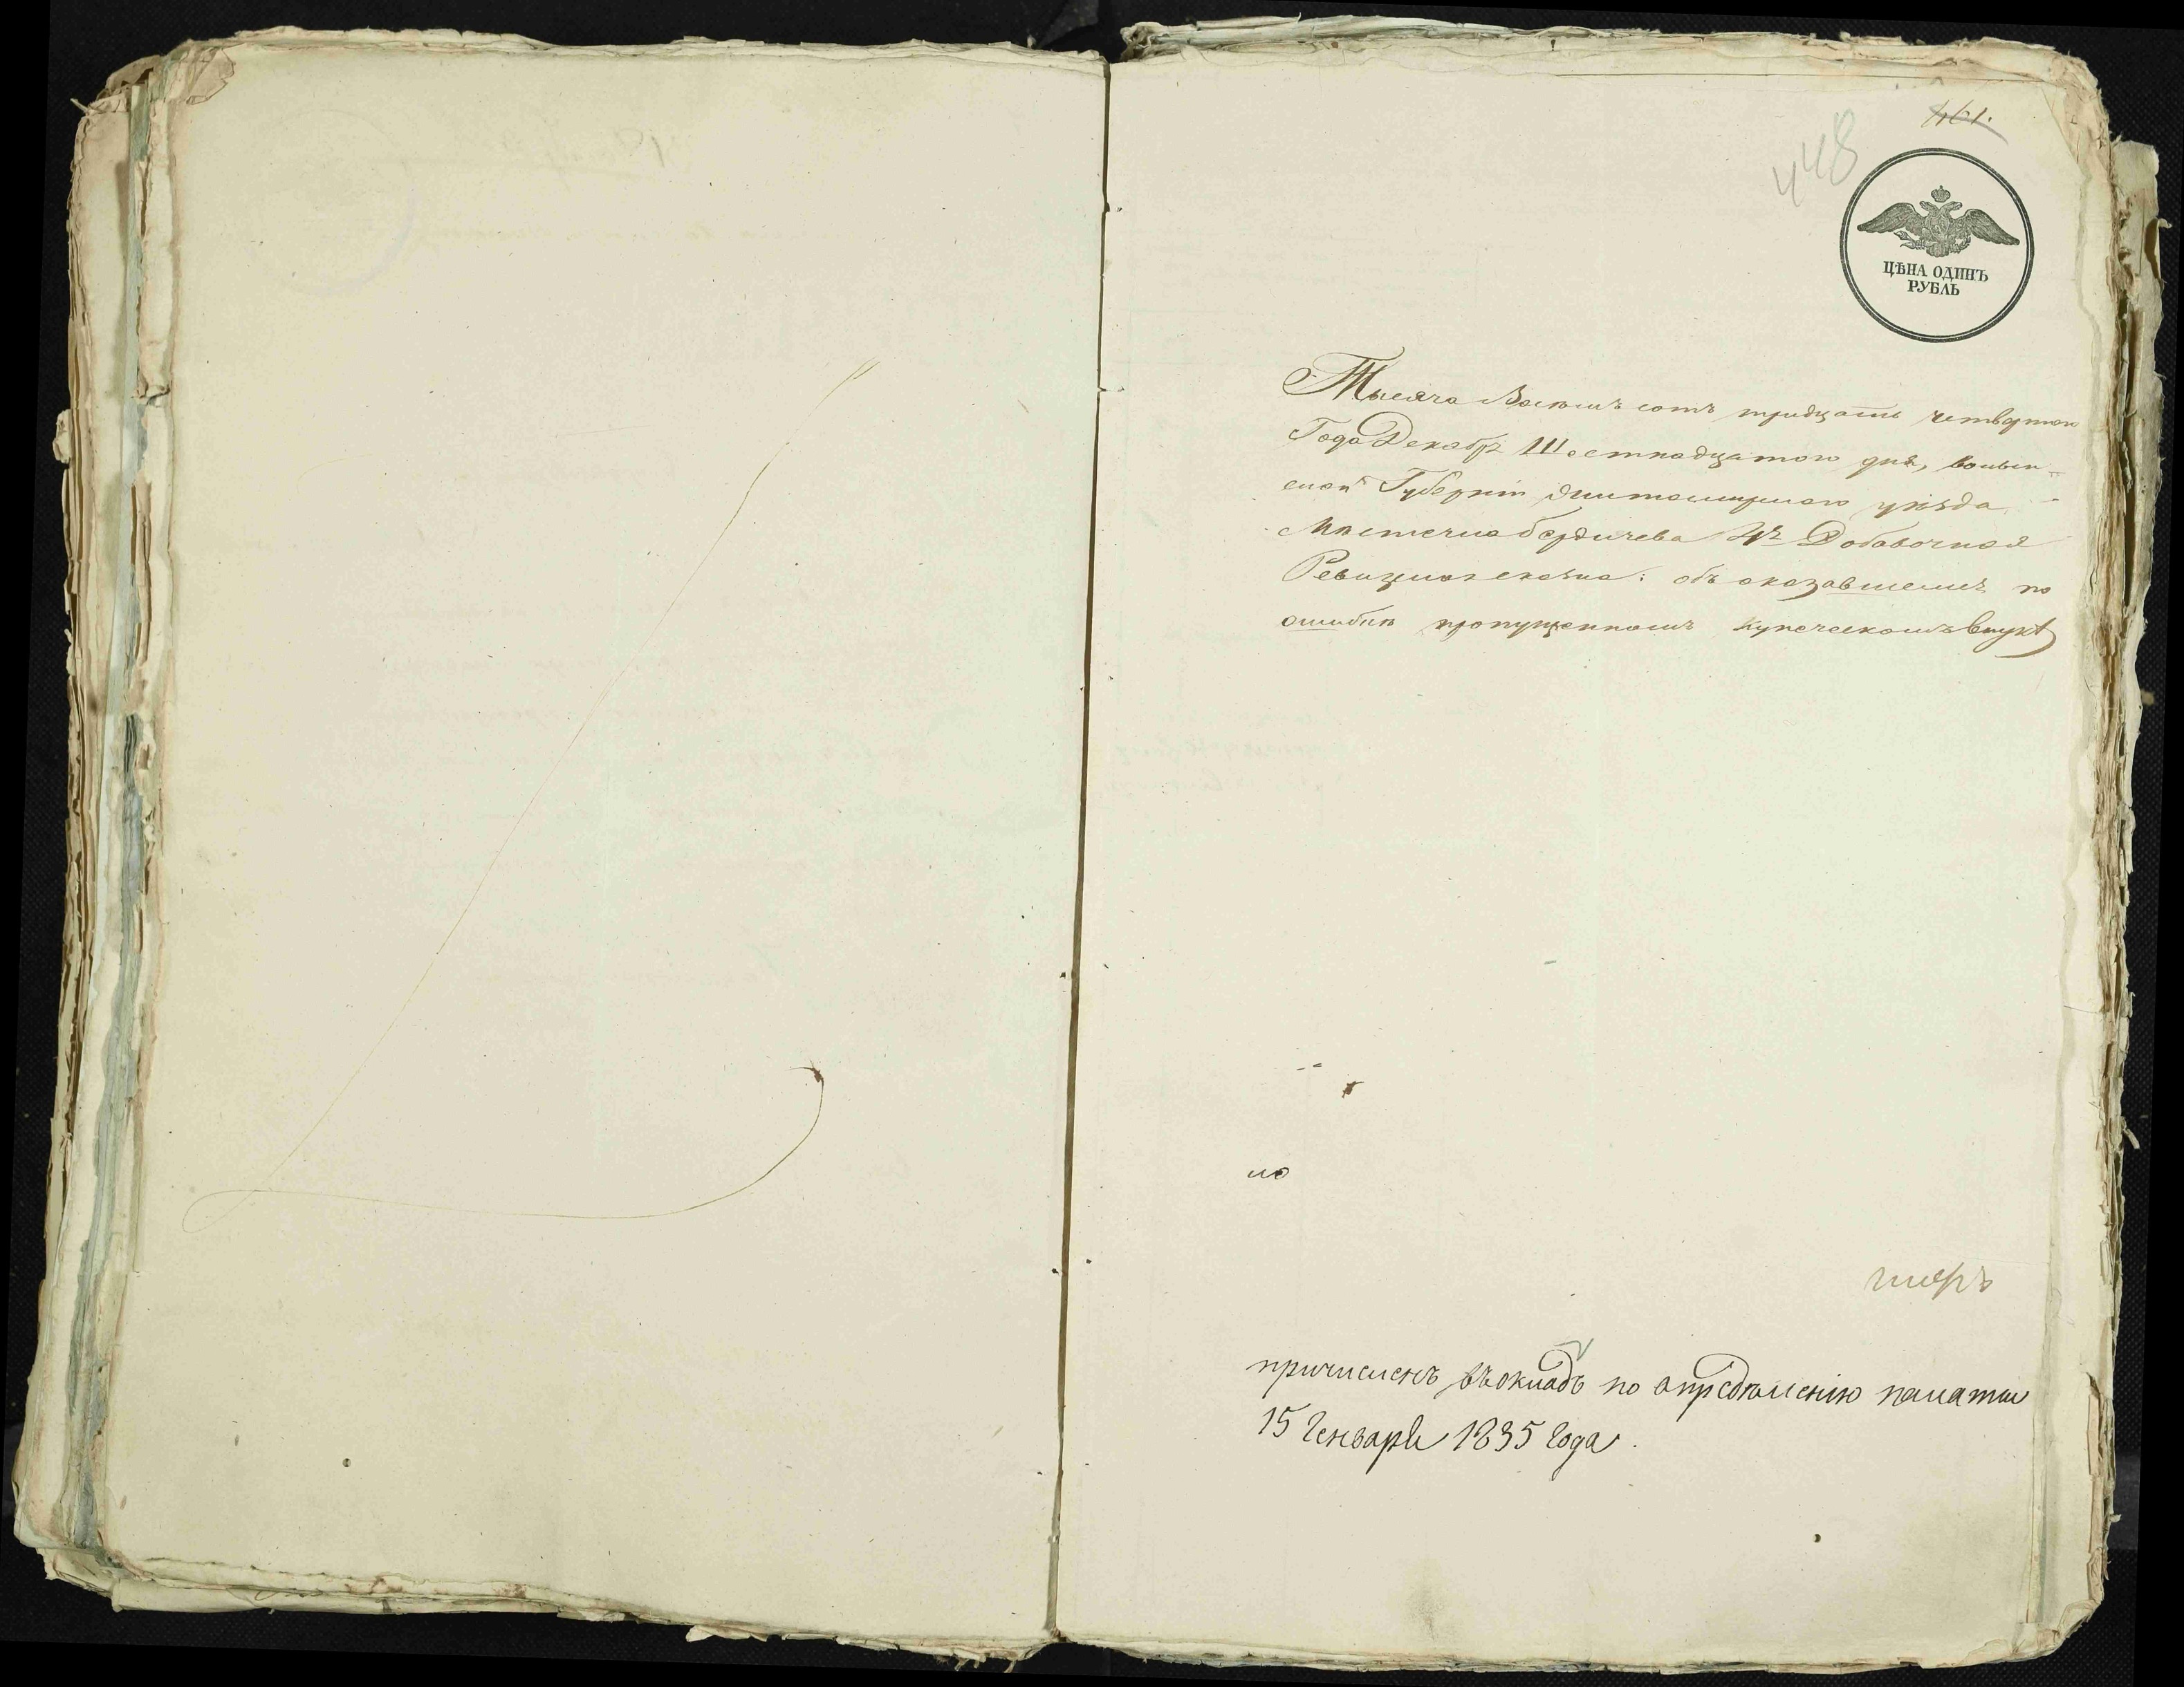 461.
448
ЦѢНА ОДИНЪ
РУБЛЬ
Тысяча Восемъ сотъ тридцать четвертого
Года Декабр Шестнадцатого дня, волын-
ской Губерніи Житомирского уезда
Местечка бердичева 4я Добавочная
Ревизская сказка: объ оказавшемъ по
ошибке пропущенномъ купеческомъ внуке
по
причисленъ въ окладъ по определенію палаты
15 Генваря 1835 года.